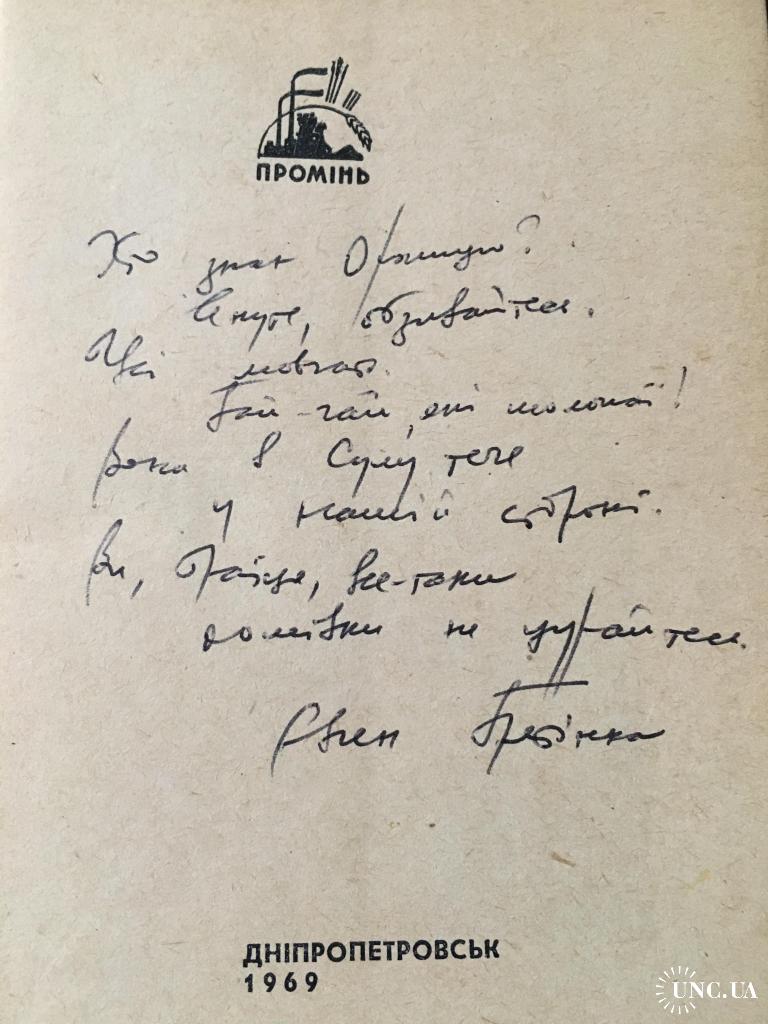 ПРОМІНЬ
Хто знає Оржицю?
А нуте, обзивайтесь.
Усі мовчать.
Гай-гай, які шолопаї!
Вона в Сулу тече
у нашій стороні.
Ви, братця, все-таки
домівки не цурайтесь.
Євген Гребінка
ДНІПРОПЕТРОВСЬК
1969
UNC.UA